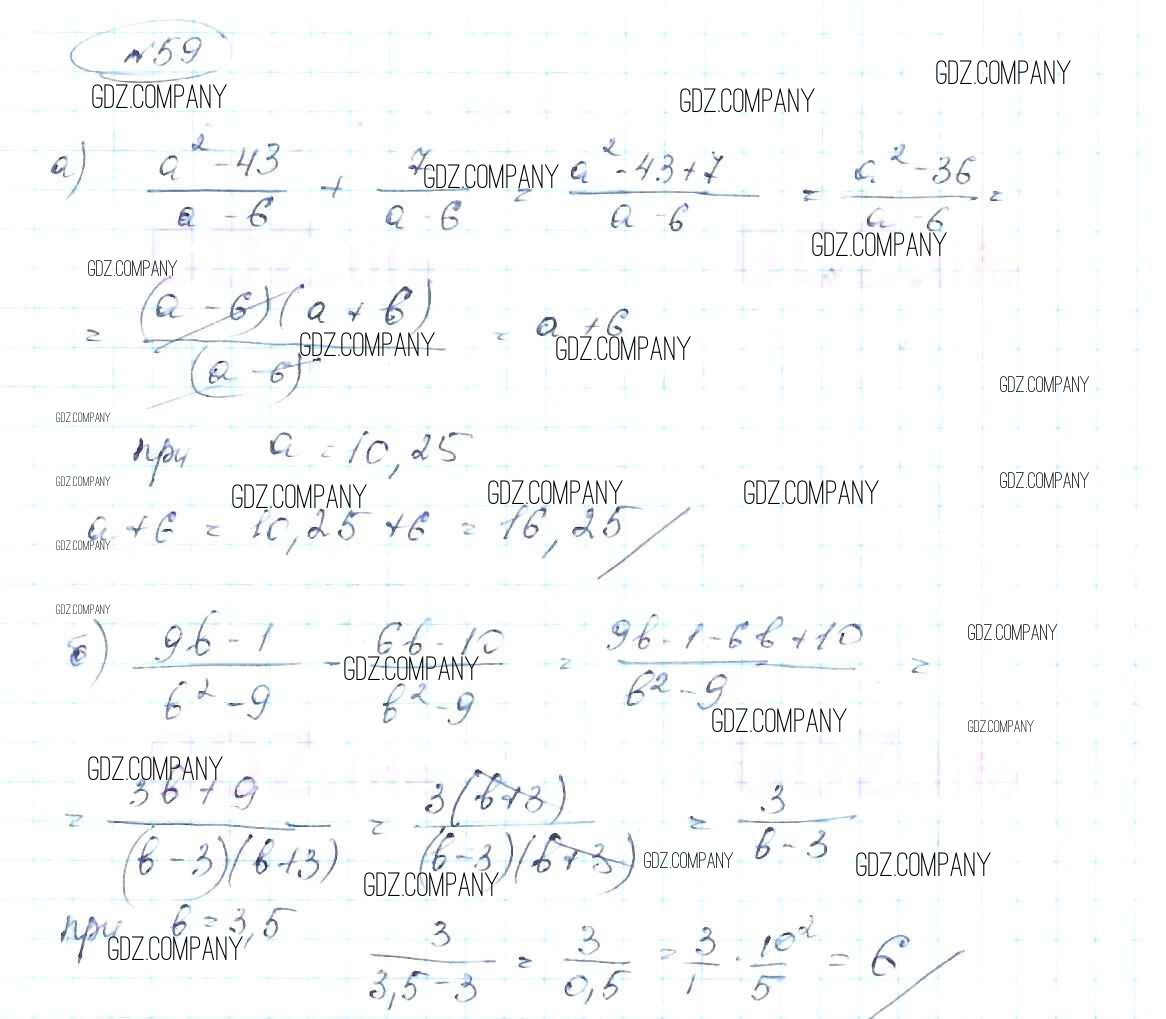 №59
GDZ.COMPANY GDZ.COMPANY GDZ.COMPANY
а) (a² - 43)/(a - 6) + 7/(a - 6) = (a² - 43 + 7)/(a - 6) = (a² - 36)/(a - 6) =
GDZ.COMPANY GDZ.COMPANY
GDZ.COMPANY
= ((a - 6)(a + 6))/(a - 6) = a + 6
GDZ.COMPANY GDZ.COMPANY
GDZ.COMPANY
GDZ.COMPANY
при a = 10,25
GDZ.COMPANY GDZ.COMPANY GDZ.COMPANY GDZ.COMPANY GDZ.COMPANY
a + 6 = 10,25 + 6 = 16,25
GDZ.COMPANY
GDZ.COMPANY GDZ.COMPANY
б) (9b - 1)/(b² - 9) - (6b - 10)/(b² - 9) = (9b - 1 - 6b + 10)/(b² - 9) =
GDZ.COMPANY GDZ.COMPANY GDZ.COMPANY
GDZ.COMPANY
= (3b + 9)/((b - 3)(b + 3)) = (3(b + 3))/((b - 3)(b + 3)) = 3/(b - 3)
GDZ.COMPANY GDZ.COMPANY GDZ.COMPANY
при b = 3,5
GDZ.COMPANY
3/(3,5 - 3) = 3/0,5 = 3/1 · 10²/5 = 6